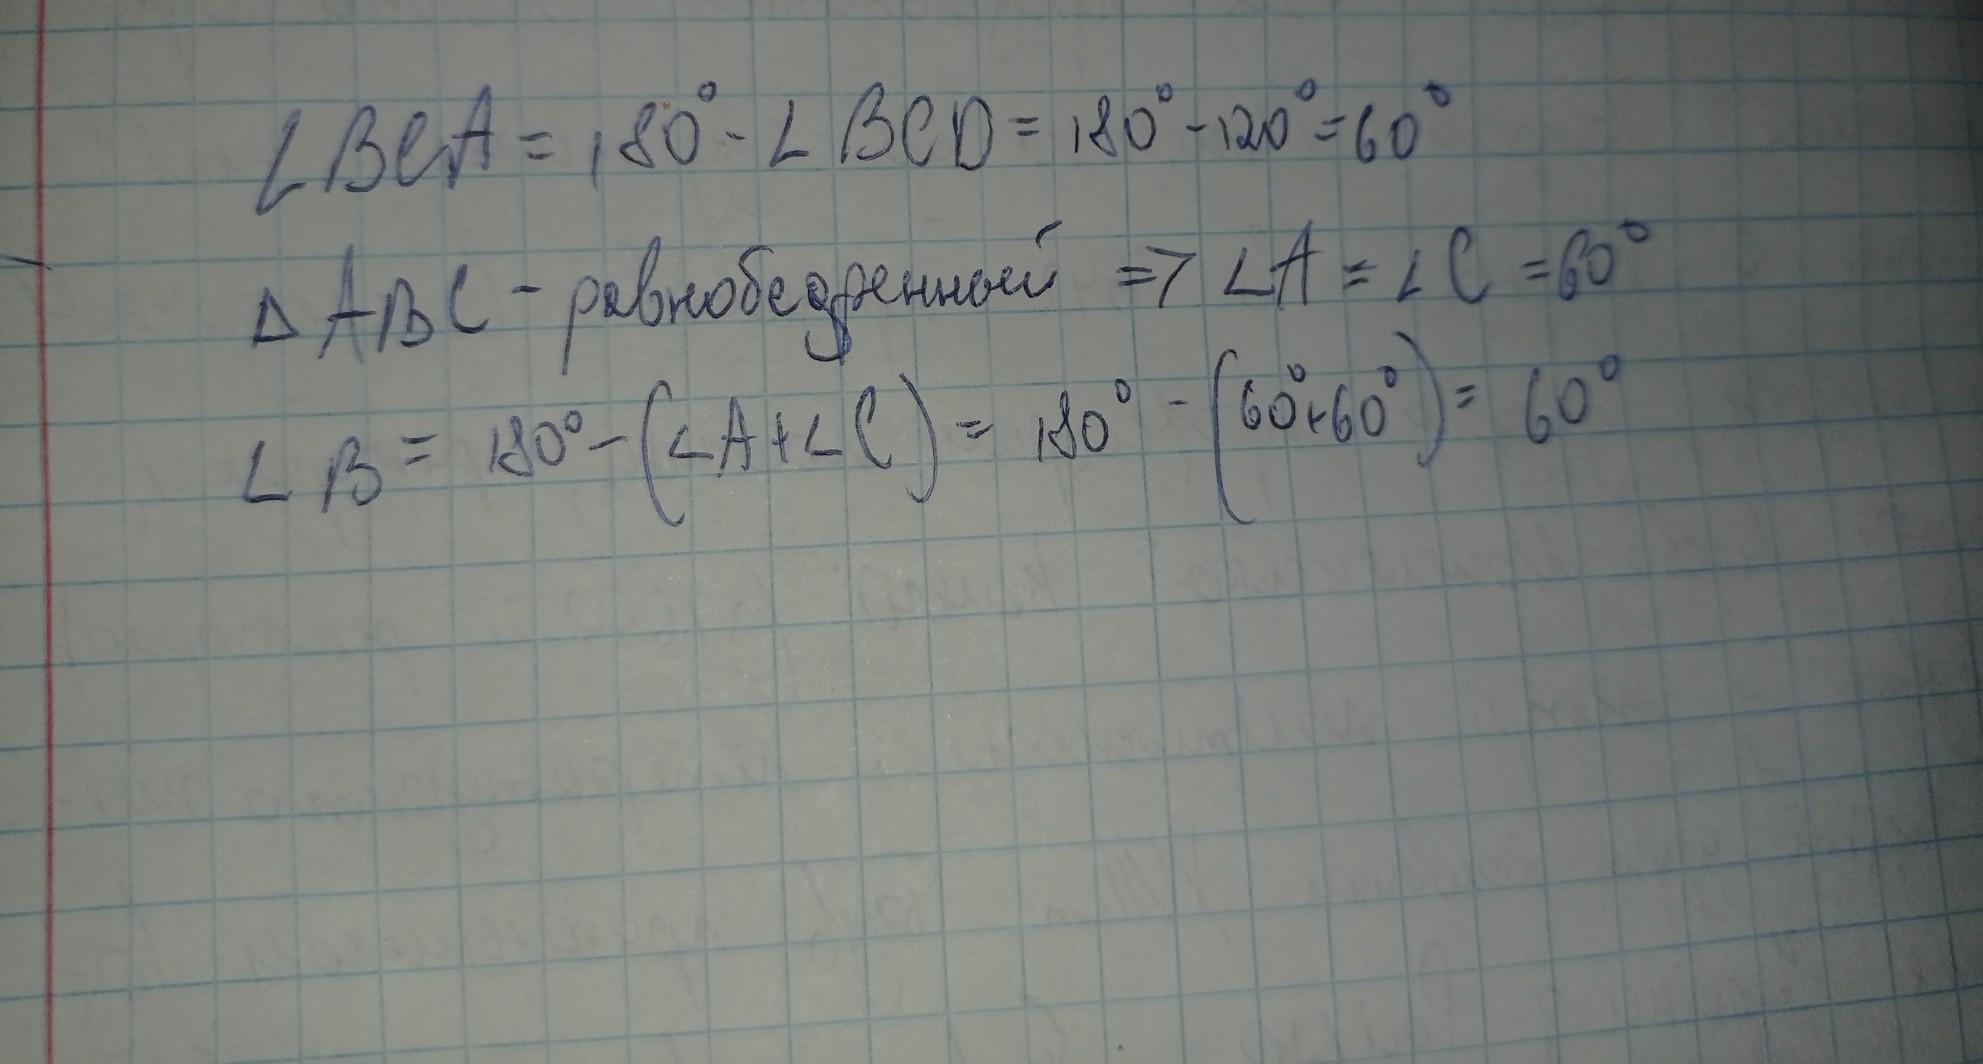 ∠BCA = 180° - ∠BCD = 180° - 120° = 60°
△ABC - равнобедренный => ∠A = ∠C = 60°
∠B = 180° - (∠A + ∠C) = 180° - (60° + 60°) = 60°